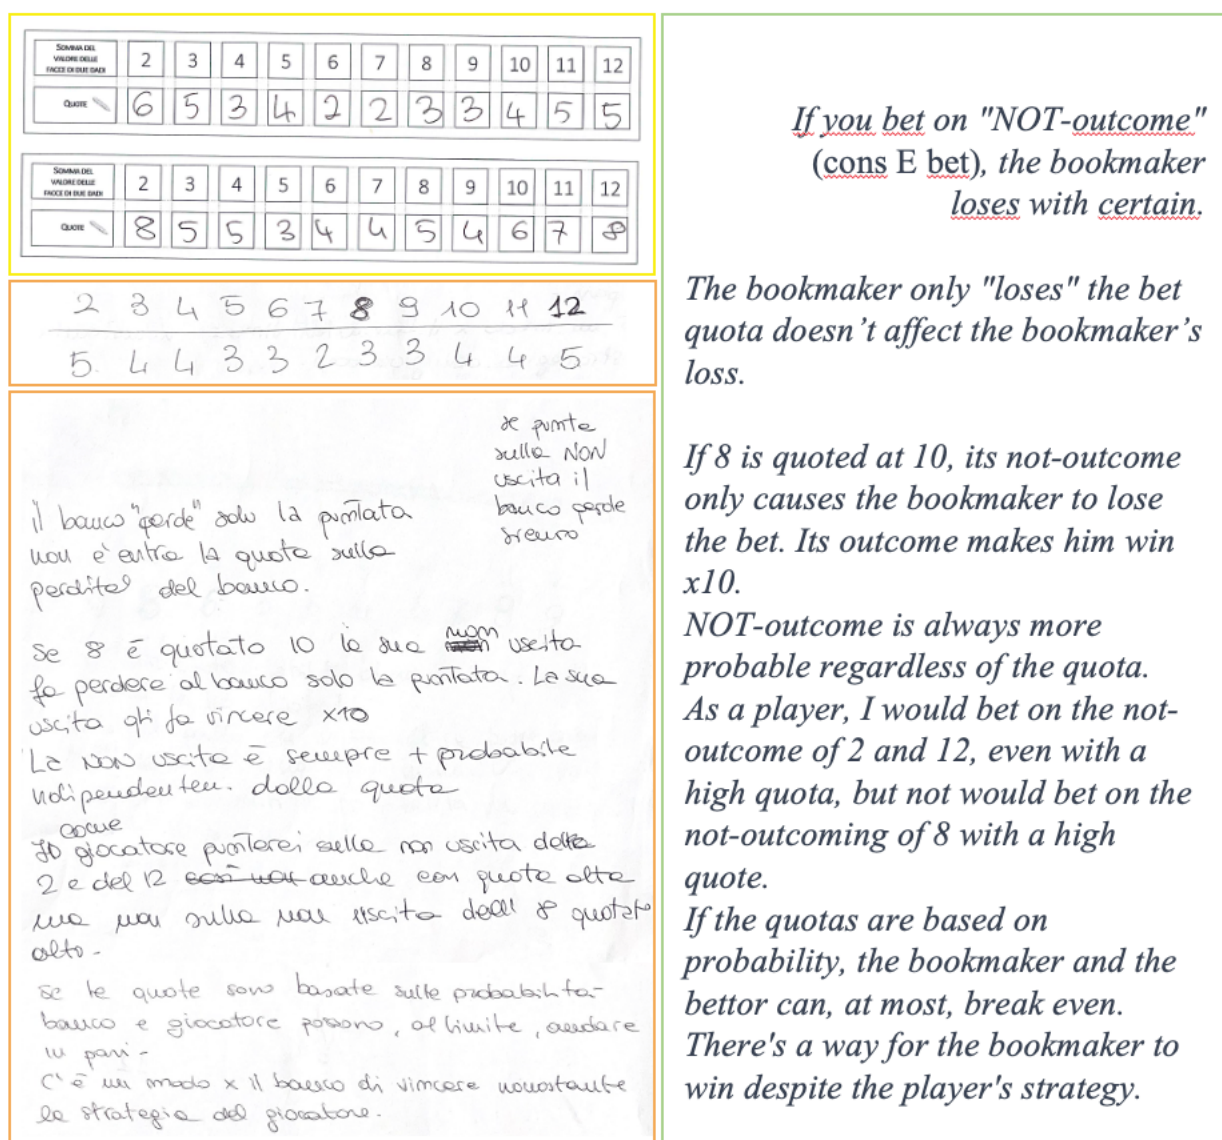 SOMMA DEL
VALORE DELLE
FACCE DI DUE DADI
2 3 4 5 6 7 8 9 10 11 12
QUOTE 6 5 3 4 2 2 3 3 4 5 5
SOMMA DEL
VALORE DELLE
FACCE DI DUE DADI
2 3 4 5 6 7 8 9 10 11 12
QUOTE 8 5 5 3 4 4 5 4 6 7 8
2 3 4 5 6 7 8 9 10 11 12
5. 4 4 3 3 2 3 3 4 4 5
se punta
sulla NON
uscita il
banco perde
sicuro
il banco "perde" solo la puntata
non c'entra la quota sulla
perdita del banco.
Se 8 è quotato 10 la sua non uscita
fa perdere al banco solo la puntata. La sua
uscita gli fa vincere x10
La NON uscita è sempre + probabile
indipendentem. dalla quota
come
Io giocatore punterei sulla non uscita del
2 e del 12 anche con quota alta
ma non sulla non uscita dell' 8 quotato
alto.
se le quote sono basate sulle probabilità
banco e giocatore possono, al limite, andare
in pari -
C'è un modo x il banco di vincere nonostante
la strategia del giocatore.
If you bet on "NOT-outcome"
(cons E bet), the bookmaker
loses with certain.
The bookmaker only "loses" the bet
quota doesn't affect the bookmaker's
loss.
If 8 is quoted at 10, its not-outcome
only causes the bookmaker to lose
the bet. Its outcome makes him win
x10.
NOT-outcome is always more
probable regardless of the quota.
As a player, I would bet on the not-
outcome of 2 and 12, even with a
high quota, but not would bet on the
not-outcoming of 8 with a high
quote.
If the quotas are based on
probability, the bookmaker and the
bettor can, at most, break even.
There's a way for the bookmaker to
win despite the player's strategy.